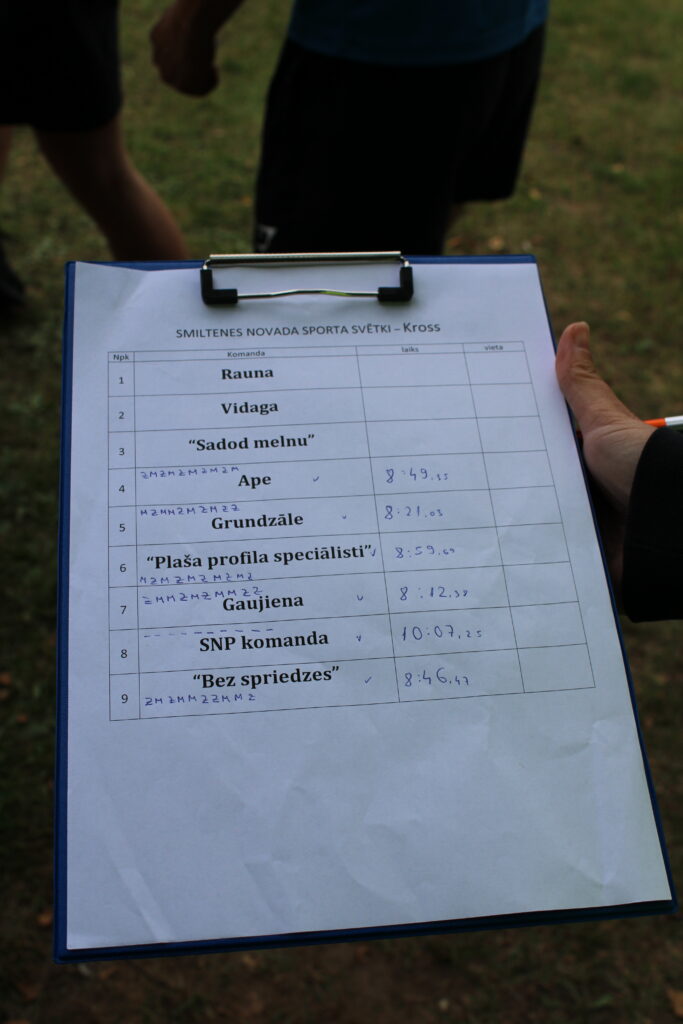 SMILTENES NOVADA SPORTA SVĒTKI – Kross
Npk Komanda laiks vieta
1 Rauna
2 Vidaga
3 “Sadod melnu”
ZMZMZMZMZM
4 Ape ✓ 8:49,35
5 Grundzāle ✓ 8:21,03
6 “Plaša profila speciālisti” ✓ 8:59,69
7 Gaujiena ✓ 8:12,38
8 SNP komanda ✓ 10:07,25
9 “Bez spriedzes” ✓ 8:46,47
ZMZMMZZMMZ